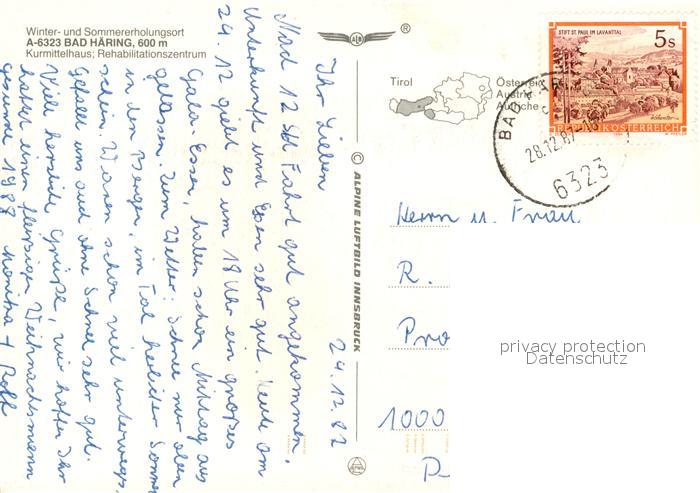 Winter- und Sommererholungsort
A-6323 BAD HÄRING, 600 m
Kurmittelhaus; Rehabilitationszentrum
®
STIFT ST. PAUL IM LAVANTTAL
5s
REPUBLIK ÖSTERREICH
Tirol
Österreich
Austria
Autriche
BAD
28.12.87-16
6323
© ALPINE LUFTBILD INNSBRUCK
24.12.87
Ihr Lieben
Nach 12 Std Fahrt gut angekommen.
Unterkunft und Essen sehr gut. Heute am
24.12 gibt es um 18 Uhr ein großes
Gala-Essen, haben schon Mittag aus
gelassen. Zum Wetter: Schnee nur oben
in den Bergen, im Tal herrlicher Sonnen
schein. Waren schon viel unterwegs,
gefällt uns auch ohne Schnee sehr gut.
Viele herzliche Grüße, wir hoffen Ihr
hattet einen fleissigen Weihnachtsmann
gesundes 1988 Monika + Rolf
Herrn u. Frau
R.
Pro
1000
privacy protection
Datenschutz